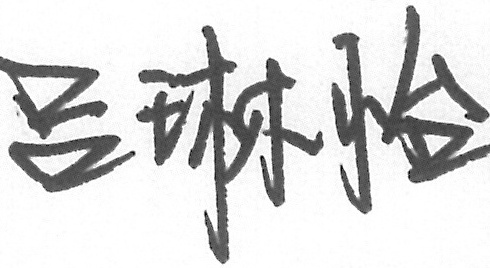 吕琳怡